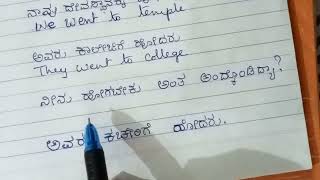 ನಾವು ದೇವಸ್ಥಾನಕ್ಕೆ
We went to temple
ಅವರು ಕಾಲೇಜಿಗೆ ಹೋದರು
They went to college
ನೀನು ಹೋಗಬೇಕು ಅಂತ ಅಂದ್ಕೊಂಡಿದ್ಯಾ?
ಅವರು ಕಚೇರಿಗೆ ಹೋದರು.